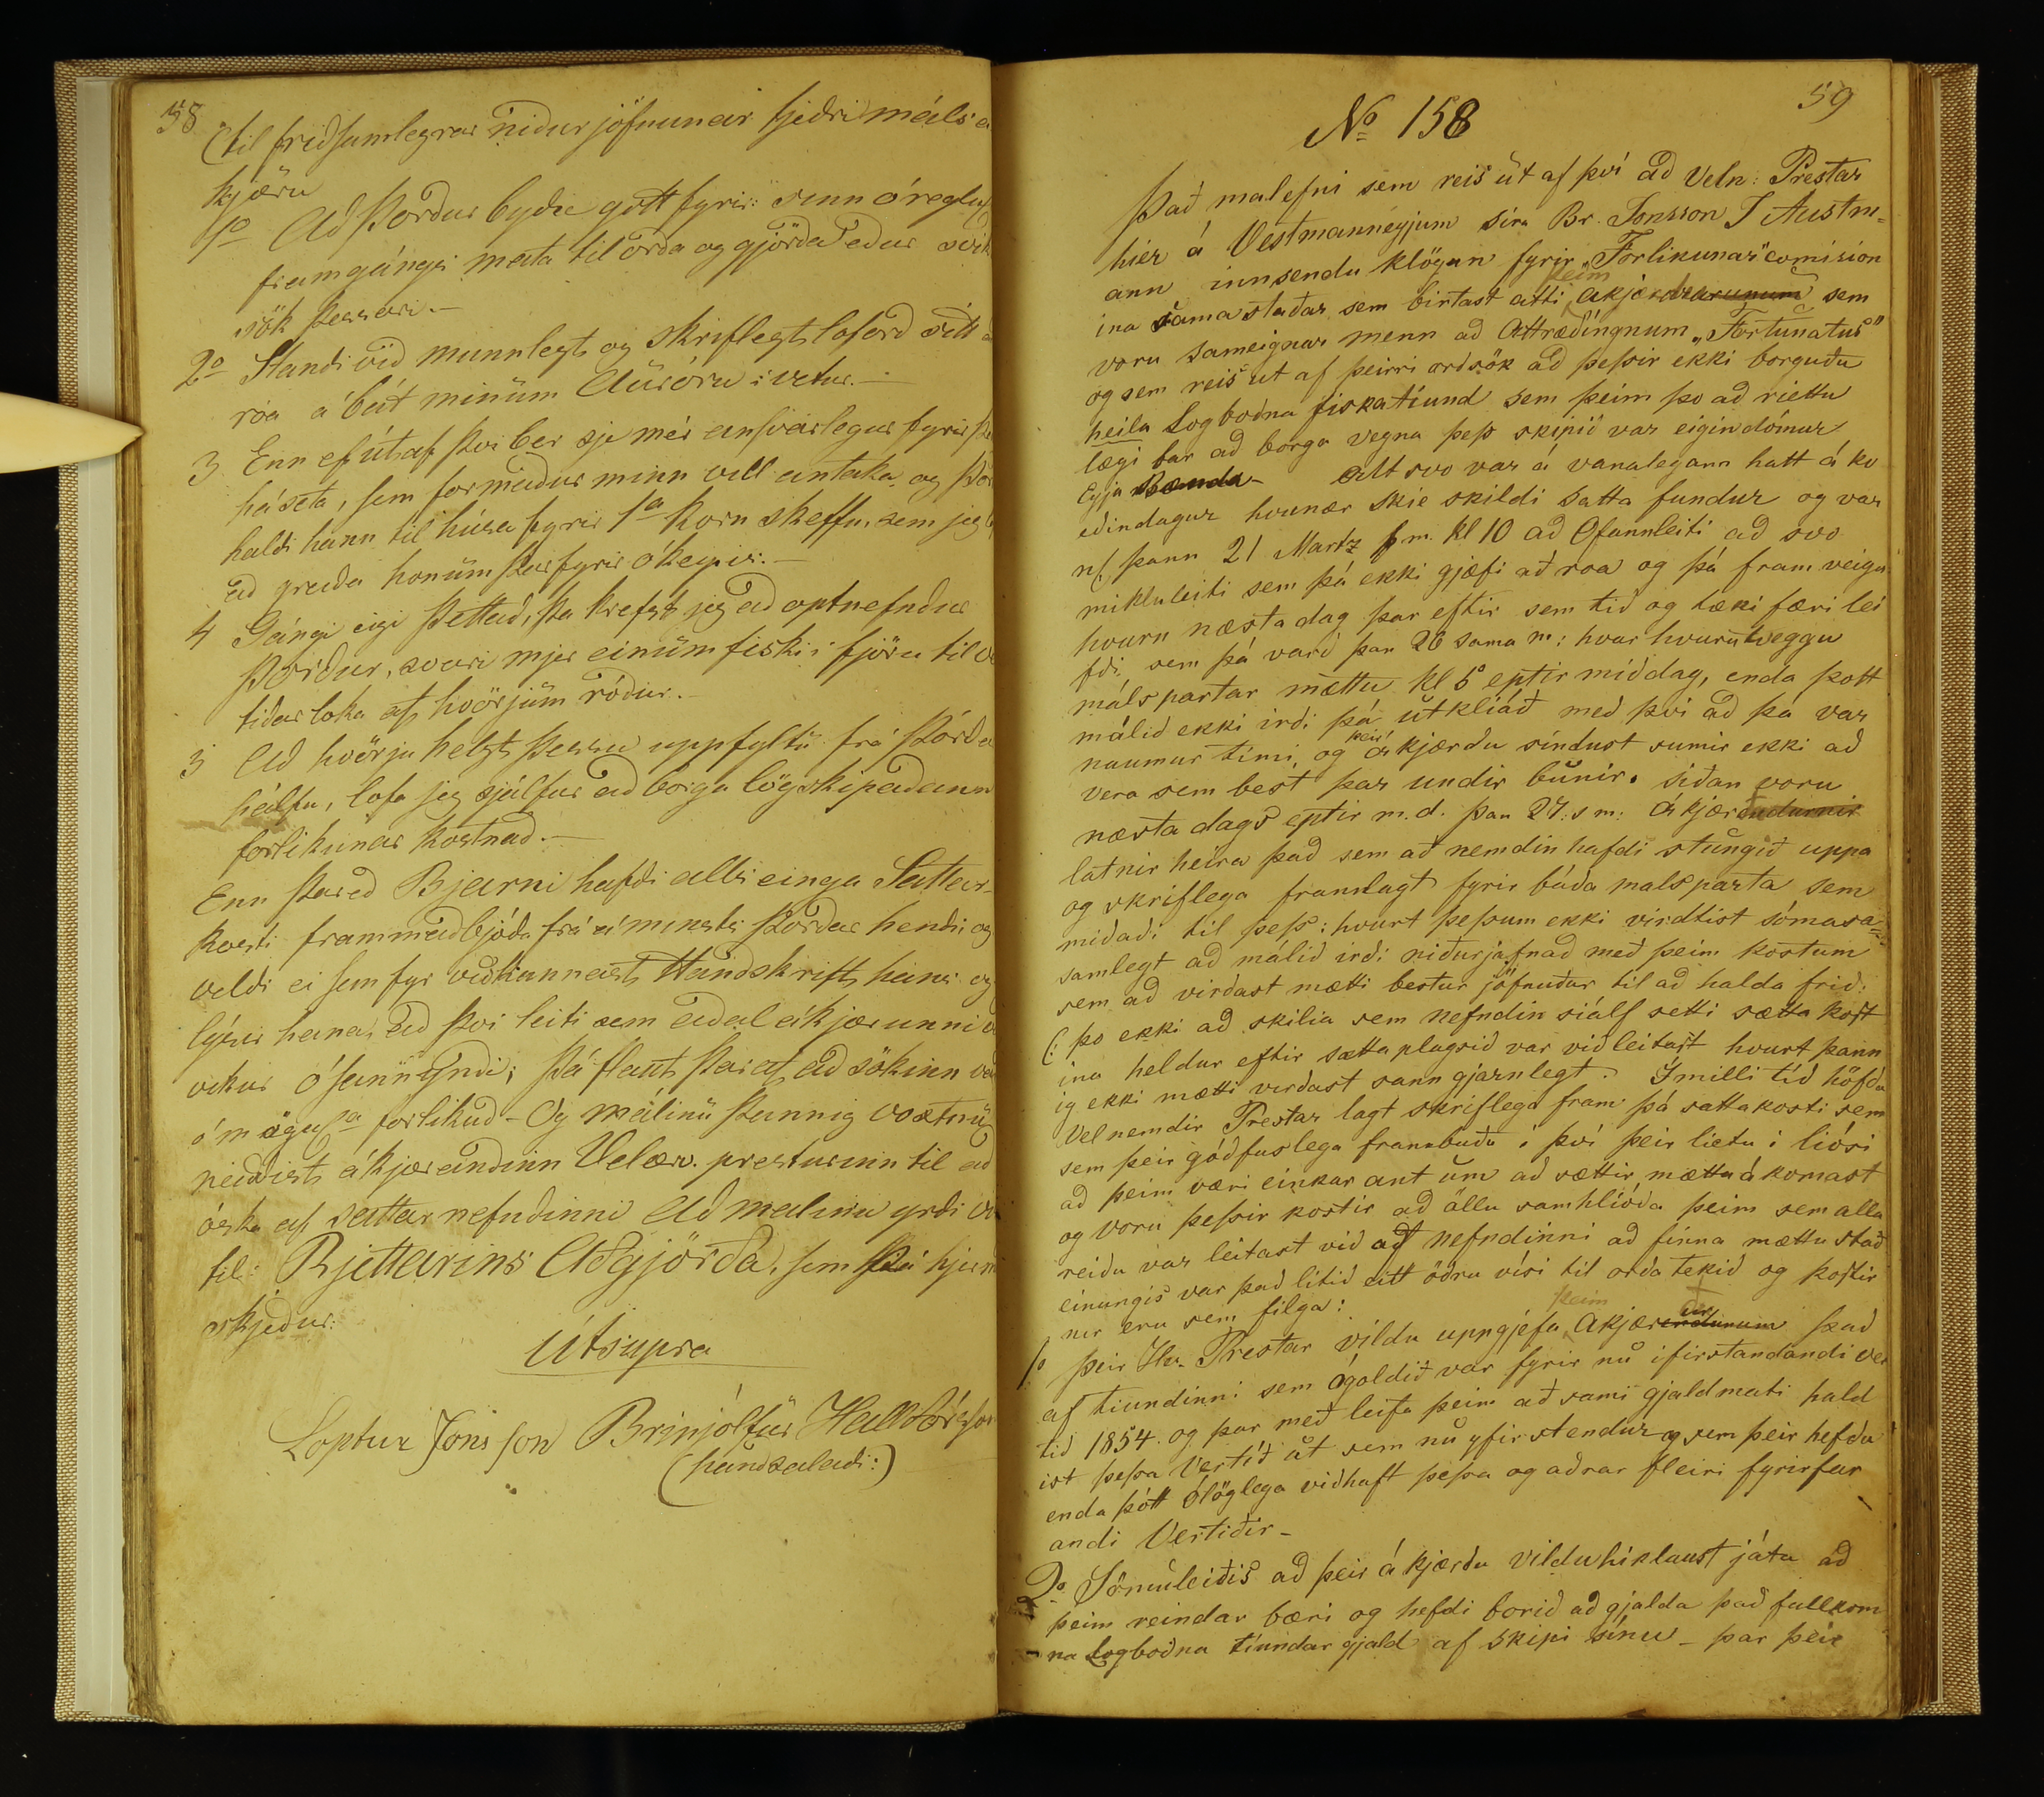 58
(til fridsamlegrar nidurjöfnunar tjedri máls á
kjæru
1o Ad Þordur bydie gott fyrir: sinn óreglu
framgángs mata til orda og gjörda edur svik
sök þessari.—
2o Standi vid munnlegt og skriflegt loford sitt a
róa á bát minum Auróru i vetur.—
3 Enn ef útaf þvi ber sje mér ansvarlegur fyrir þe
háseta, sem formadur minn vill antaka, og Þor
haldi hann til húsa fyrir 1a korn skeffu, sem jeg
ad greida honum þarfyrir ókeypis:—
4 Gángi eigi þettad, þa krefst jeg ad optnefndur
Þordur, svari mjer einum fiski i fjöru til ve
tidarloka af hvörjum ródur.—
5 Ad hvörju helst þessu uppfyltu frá Þórda
hálfu, lofa jeg sjálfur ad borga lögskipadann
forlikunar kostnad.—
Enn þared Bjarni hafdi alls einga Sattar-
kosti frammadbjóda frá á minsta Þordar hendi og
veldi ei sem fyr vidkannast Handskrift hans og
lýsir hana, ad þvi leiti sem adal ákjærunni
vikur ósannindi; þá flaut þar af, ad sökinn va
ómögul. forlikud - Og málinu þannig voxtnu
neiddist ákjærandinn Velærv. presturinn til ad
óska af sattarnefndinni ad malinu yrdi vi
til: Rjettarins Adgjörda, sem þá hjerm
skjedur:
Útsupra
Loptur Jónsson Brinjólfur Halldórsson
(handsaladi:)
59
No 158
Það malefni sem reis út af því að Veln: Prestar
hier á Vestmanneyjum síra Br. Jonsson I Austm=
ann innsendu klögun fyrir „Forlikunar" comision
ina sama staðar sem birtast átti þeim akjærdararunum sem
voru Sameignar menn að Attræðingnum „Fortunatus"
og sem reis út af þeirri orðsök að þessir ekki borguðu
heila Logboðna fiskatiund sem þeim þo að riettu
lægi bar að borga vegna þess skipið var eigindómur
Eyja Bænda - Alt svo var á vanalegann hatt á kv
eðindagur hvunær skie skildi Satta fundur og var
nl. þann 21 Martz f.m. kl 10 að Ofannleiti að svo
miklu leiti sem þá ekki gjæfi að roa og þá fram veigu
hvurn næsta dag þar eftir sem tið og tæki færi lei
fði, sem þá varð þan 26 sama m: hvar hvurutveggu
málspartar mættu kl 5 eptir middag, enda þott
málið ekki irði þá útkliáð með því að þá var
naumur tími, og þeir ákjærðu síndust sumir ekki að
vera sem best þar undir búnir. siðan voru
næsta dags eptir m.d. þan 27: s m: ákjærendurnir
latnir heira það sem að nemdin hafdi stungið uppa
og skriflega framlagt fyrir báða malsparta sem
miðaði til þess: hvurt þessum ekki virdtist sómasa=
samlegt að málið irði niðurjafnað með þeim kostum
sem að virðast mætti bestur jöfnuður til að halda frið:
(: þo ekki að skilia sem nefndin siálf setti sætta kost
ina heldur eftir sættaplagsið var viðleitast hvurt þann
ig ekki mætti virðast sanngjarnlegt. Imilli tid höfðu
Velnemdir Prestar lagt skriflega fram þá sattakosti sem
sem þeir góðfuslega frambuðu i því þeir lietu i liósi
að þeim væri einkar ant um að sættir mættu ákomast
og voru þessir kostir að öllu samhlióða þeim sem alla
reiðu var leitast við af nefndinni að finna mættu stað
einungis var það lítið eitt öðru vísi til orða tekið og kostir
nir eru sem filgja:
1o þeir Hv. Prestar vildu uppgjefa þeim Akjærendunum það
af tiundinni sem ógoldið var fyrir nú ifirstandandi ver
tið 1854. og þar með leifa þeim að sami gjaldmati hald
ist þessa Vertíð út sem nú yfirstendur og sem þeir hefdu
enda þótt ólöglega viðhaft þessa og aðrar fleiri fyrirfar
andi Vertiðir -
2o Sömuleiðis að þeir ákjærdu vildu hiklaust játa að
þeim reindar bæri og hefdi borið að gjalda það fullkom
na Logboðna tíundar gjald af skipi sínu - þar þeir